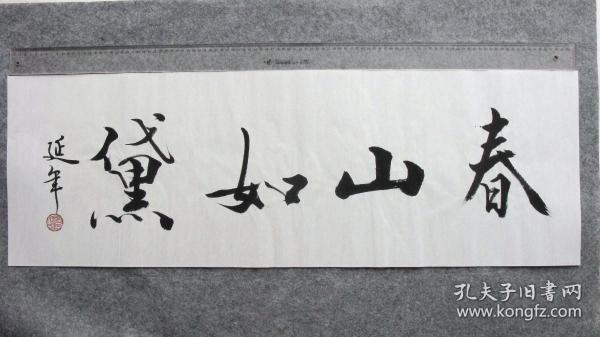 春山如黛
延年
孔夫子旧書网
www.kongfz.com